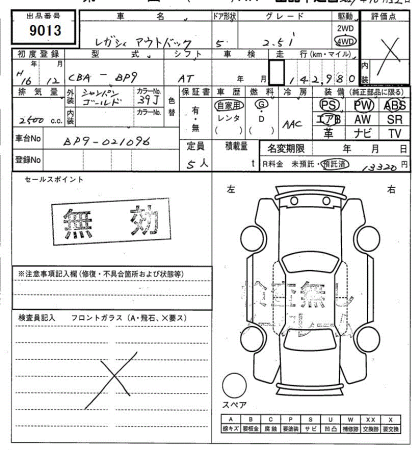 出品番号 車名 ドア形状 グレード 駆動 評価点
9013 レガシィ アウトバック 5 2.5i 2WD 4WD
内装
初度登録 型式 シフト 車検 走行(km・マイル)
H 16 年 12 月 CBA-BP9 AT 年 月 142,980
排気量 外装 シャンパンゴールド カラーNo. 39J 色替 保証書 車歴 燃料 冷房 装備(純正部品に限る)
2500 c.c. 内装 カラーNo. 有・無 自家用 レンタ G・D AAC PS PW ABS
エアB AW SR
革 ナビ TV
車台No BP9-021096 定員 積載量 名変期限 年 月 日
登録No 5人 t R料金 未預託・預託済 13320 円
セールスポイント
無効
左 右
検査無し
※注意事項記入欄(修復・不具合箇所および状態等)
検査員記入 フロントガラス(A・飛石、×要ス)
スペア
A B C P S U W XX X
線キズ 要板金 腐蝕 要塗装 サビ 凹凸 補修跡 交換跡 要交換